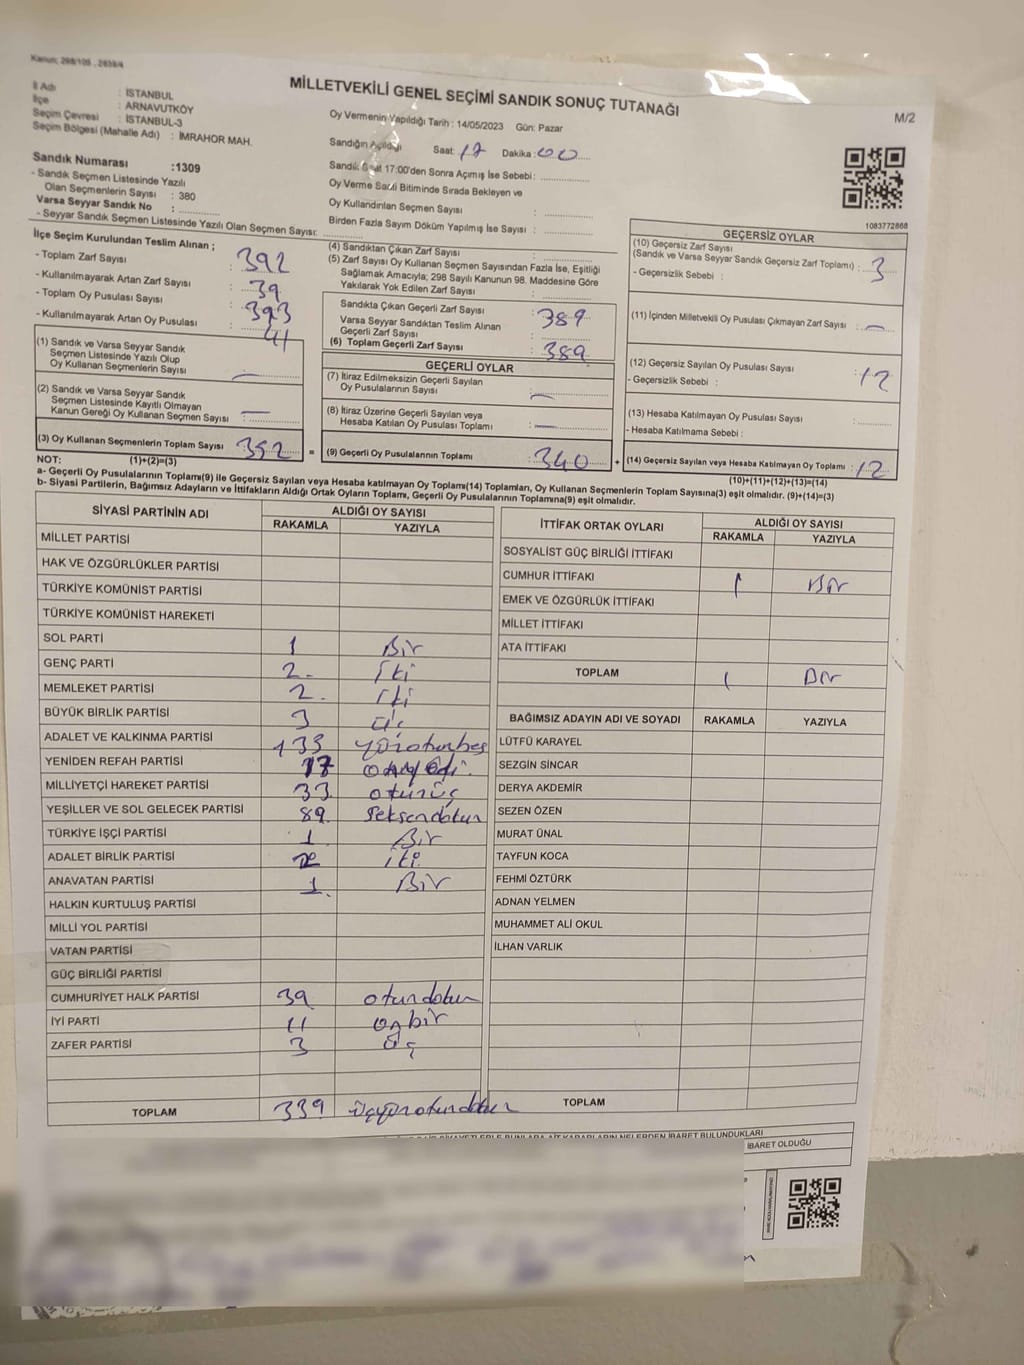 Kanun: 298/105 , 2839/4
MİLLETVEKİLİ GENEL SEÇİMİ SANDIK SONUÇ TUTANAĞI
M/2
İl Adı : İSTANBUL
İlçe : ARNAVUTKÖY
Seçim Çevresi : İSTANBUL-3
Seçim Bölgesi (Mahalle Adı) : İMRAHOR MAH.
Oy Vermenin Yapıldığı Tarih : 14/05/2023 Gün: Pazar
Sandığın Açıldığı Saat: 17 Dakika: 00
Sandık Saat 17:00'den Sonra Açımış İse Sebebi:
Oy Verme Saati Bitiminde Sırada Bekleyen ve
Oy Kullandırılan Seçmen Sayısı :
Birden Fazla Sayım Döküm Yapılmış İse Sayısı :
Sandık Numarası :1309
- Sandık Seçmen Listesinde Yazılı
Olan Seçmenlerin Sayısı : 380
Varsa Seyyar Sandık No :
- Seyyar Sandık Seçmen Listesinde Yazılı Olan Seçmen Sayısı:
1083772868
İlçe Seçim Kurulundan Teslim Alınan ;
- Toplam Zarf Sayısı : 392
- Kullanılmayarak Artan Zarf Sayısı : 39
- Toplam Oy Pusulası Sayısı : 393
- Kullanılmayarak Artan Oy Pusulası : 41
(1) Sandık ve Varsa Seyyar Sandık
Seçmen Listesinde Yazılı Olup
Oy Kullanan Seçmenlerin Sayısı : —
(2) Sandık ve Varsa Seyyar Sandık
Seçmen Listesinde Kayıtlı Olmayan
Kanun Gereği Oy Kullanan Seçmen Sayısı : —
(3) Oy Kullanan Seçmenlerin Toplam Sayısı : 352 =
(4) Sandıktan Çıkan Zarf Sayısı :
(5) Zarf Sayısı Oy Kullanan Seçmen Sayısından Fazla İse, Eşitliği
Sağlamak Amacıyla; 298 Sayılı Kanunun 98. Maddesine Göre
Yakılarak Yok Edilen Zarf Sayısı :
Sandıkta Çıkan Geçerli Zarf Sayısı : 389
Varsa Seyyar Sandıktan Teslim Alınan
Geçerli Zarf Sayısı :
(6) Toplam Geçerli Zarf Sayısı : 389
GEÇERLİ OYLAR
(7) İtiraz Edilmeksizin Geçerli Sayılan
Oy Pusulalarının Sayısı : —
(8) İtiraz Üzerine Geçerli Sayılan veya
Hesaba Katılan Oy Pusulası Toplamı : —
(9) Geçerli Oy Pusulalarının Toplamı : 340 +
GEÇERSİZ OYLAR
(10) Geçersiz Zarf Sayısı
(Sandık ve Varsa Seyyar Sandık Geçersiz Zarf Toplamı) : 3
- Geçersizlik Sebebi :
(11) İçinden Milletvekili Oy Pusulası Çıkmayan Zarf Sayısı : —
(12) Geçersiz Sayılan Oy Pusulası Sayısı : 12
- Geçersizlik Sebebi :
(13) Hesaba Katılmayan Oy Pusulası Sayısı :
- Hesaba Katılmama Sebebi :
(14) Geçersiz Sayılan veya Hesaba Katılmayan Oy Toplamı : 12
NOT: (1)+(2)=(3)
(10)+(11)+(12)+(13)=(14)
a- Geçerli Oy Pusulalarının Toplamı(9) ile Geçersiz Sayılan veya Hesaba katılmayan Oy Toplamı(14) Toplamları, Oy Kullanan Seçmenlerin Toplam Sayısına(3) eşit olmalıdır. (9)+(14)=(3)
b- Siyasi Partilerin, Bağımsız Adayların ve İttifakların Aldığı Ortak Oyların Toplamı, Geçerli Oy Pusulalarının Toplamına(9) eşit olmalıdır.
SİYASİ PARTİNİN ADI ALDIĞI OY SAYISI
RAKAMLA YAZIYLA
MİLLET PARTİSİ
HAK VE ÖZGÜRLÜKLER PARTİSİ
TÜRKİYE KOMÜNİST PARTİSİ
TÜRKİYE KOMÜNİST HAREKETİ
SOL PARTİ 1 Bir
GENÇ PARTİ 2 iki
MEMLEKET PARTİSİ 2 iki
BÜYÜK BİRLİK PARTİSİ 3 üç
ADALET VE KALKINMA PARTİSİ 135 yüzotuzbeş
YENİDEN REFAH PARTİSİ 17 onyedi
MİLLİYETÇİ HAREKET PARTİSİ 33 otuzüç
YEŞİLLER VE SOL GELECEK PARTİSİ 89 seksendokuz
TÜRKİYE İŞÇİ PARTİSİ 1 Bir
ADALET BİRLİK PARTİSİ 2 iki
ANAVATAN PARTİSİ 1 Bir
HALKIN KURTULUŞ PARTİSİ
MİLLİ YOL PARTİSİ
VATAN PARTİSİ
GÜÇ BİRLİĞİ PARTİSİ
CUMHURİYET HALK PARTİSİ 39 otuzdokuz
İYİ PARTİ 11 onbir
ZAFER PARTİSİ 3 üç
TOPLAM 339 üçyüzotuzdokuz
İTTİFAK ORTAK OYLARI ALDIĞI OY SAYISI
RAKAMLA YAZIYLA
SOSYALİST GÜÇ BİRLİĞİ İTTİFAKI
CUMHUR İTTİFAKI 1 Bir
EMEK VE ÖZGÜRLÜK İTTİFAKI
MİLLET İTTİFAKI
ATA İTTİFAKI
TOPLAM 1 Bir
BAĞIMSIZ ADAYIN ADI VE SOYADI RAKAMLA YAZIYLA
LÜTFÜ KARAYEL
SEZGİN SİNCAR
DERYA AKDEMİR
SEZEN ÖZEN
MURAT ÜNAL
TAYFUN KOCA
FEHMİ ÖZTÜRK
ADNAN YELMEN
MUHAMMET ALİ OKUL
İLHAN VARLIK
TOPLAM
NELERDEN İBARET BULUNDUKLARI
İBARET OLDUĞU